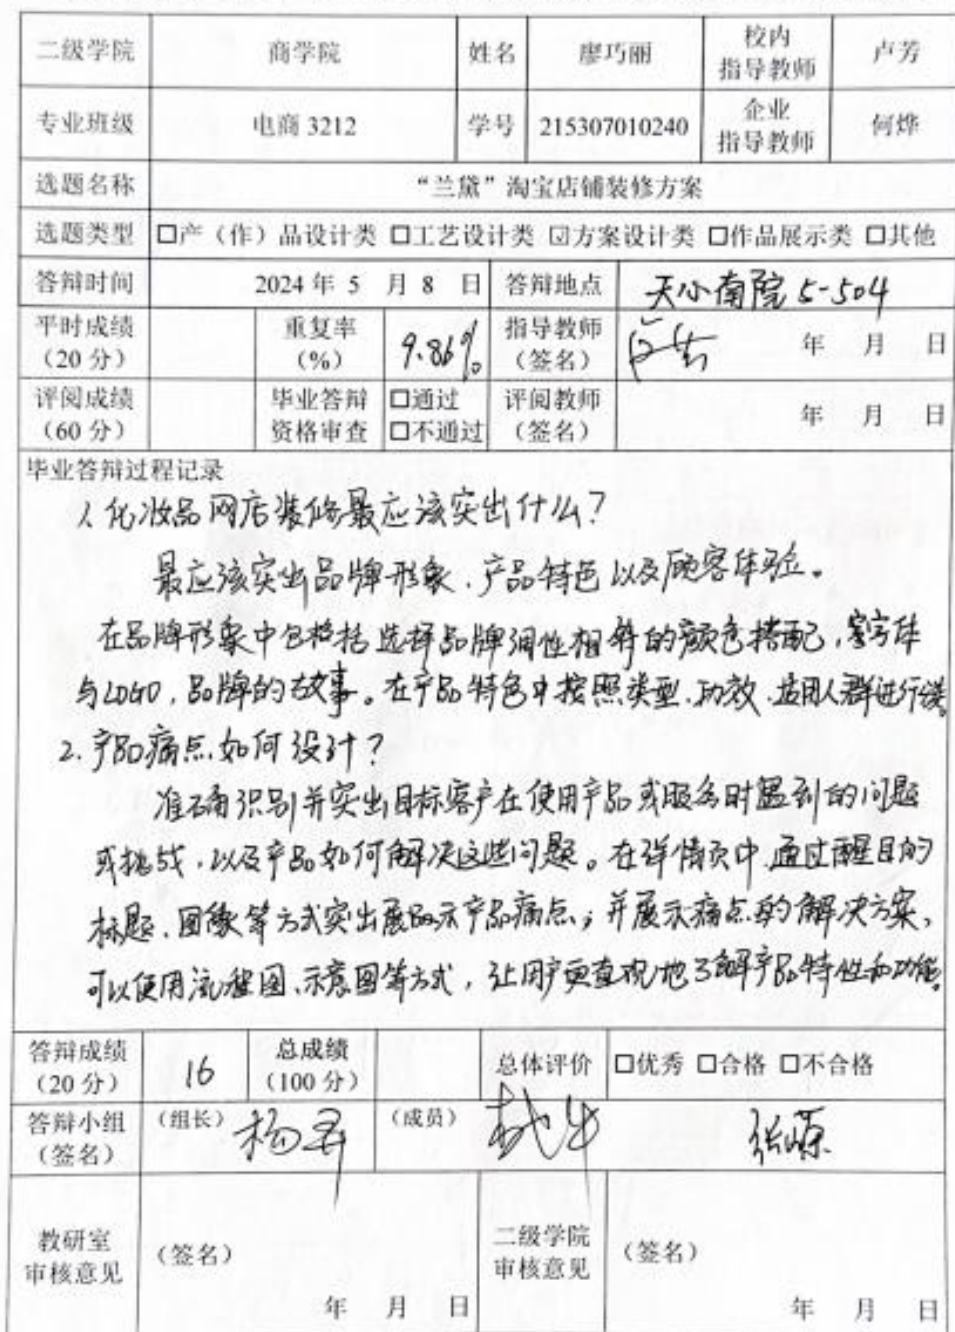 二级学院 商学院 姓名 廖巧丽 校内指导教师 卢芳
专业班级 电商 3212 学号 215307010240 企业指导教师 何烨
选题名称 “兰黛”淘宝店铺装修方案
选题类型 □产（作）品设计类 □工艺设计类 ☑方案设计类 □作品展示类 □其他
答辩时间 2024 年 5 月 8 日 答辩地点 天心南院 5-504
平时成绩（20 分） 重复率（%） 9.86% 指导教师（签名） 年 月 日
评阅成绩（60 分） 毕业答辩资格审查 □通过 □不通过 评阅教师（签名） 年 月 日
毕业答辩过程记录
1. 化妆品网店装修最应该突出什么？
最应该突出品牌形象、产品特色以及顾客体验。
在品牌形象中包括选择品牌调性相符的颜色搭配，字体
与LOGO，品牌的故事。在产品特色中按照类型、功效、适用人群进行
2. 产品痛点如何设计？
准确识别并突出目标客户在使用产品或服务时遇到的问题
或挑战，以及产品如何解决这些问题。在详情页中，通过醒目的
标题、图像等方式突出展示产品痛点；并展示痛点的解决方案，
可以使用流程图、示意图等方式，让用户更直观地了解产品特性和功能。
答辩成绩（20 分） 16 总成绩（100 分） 总体评价 □优秀 □合格 □不合格
答辩小组（签名） （组长） （成员）
教研室审核意见 （签名） 年 月 日 二级学院审核意见 （签名） 年 月 日